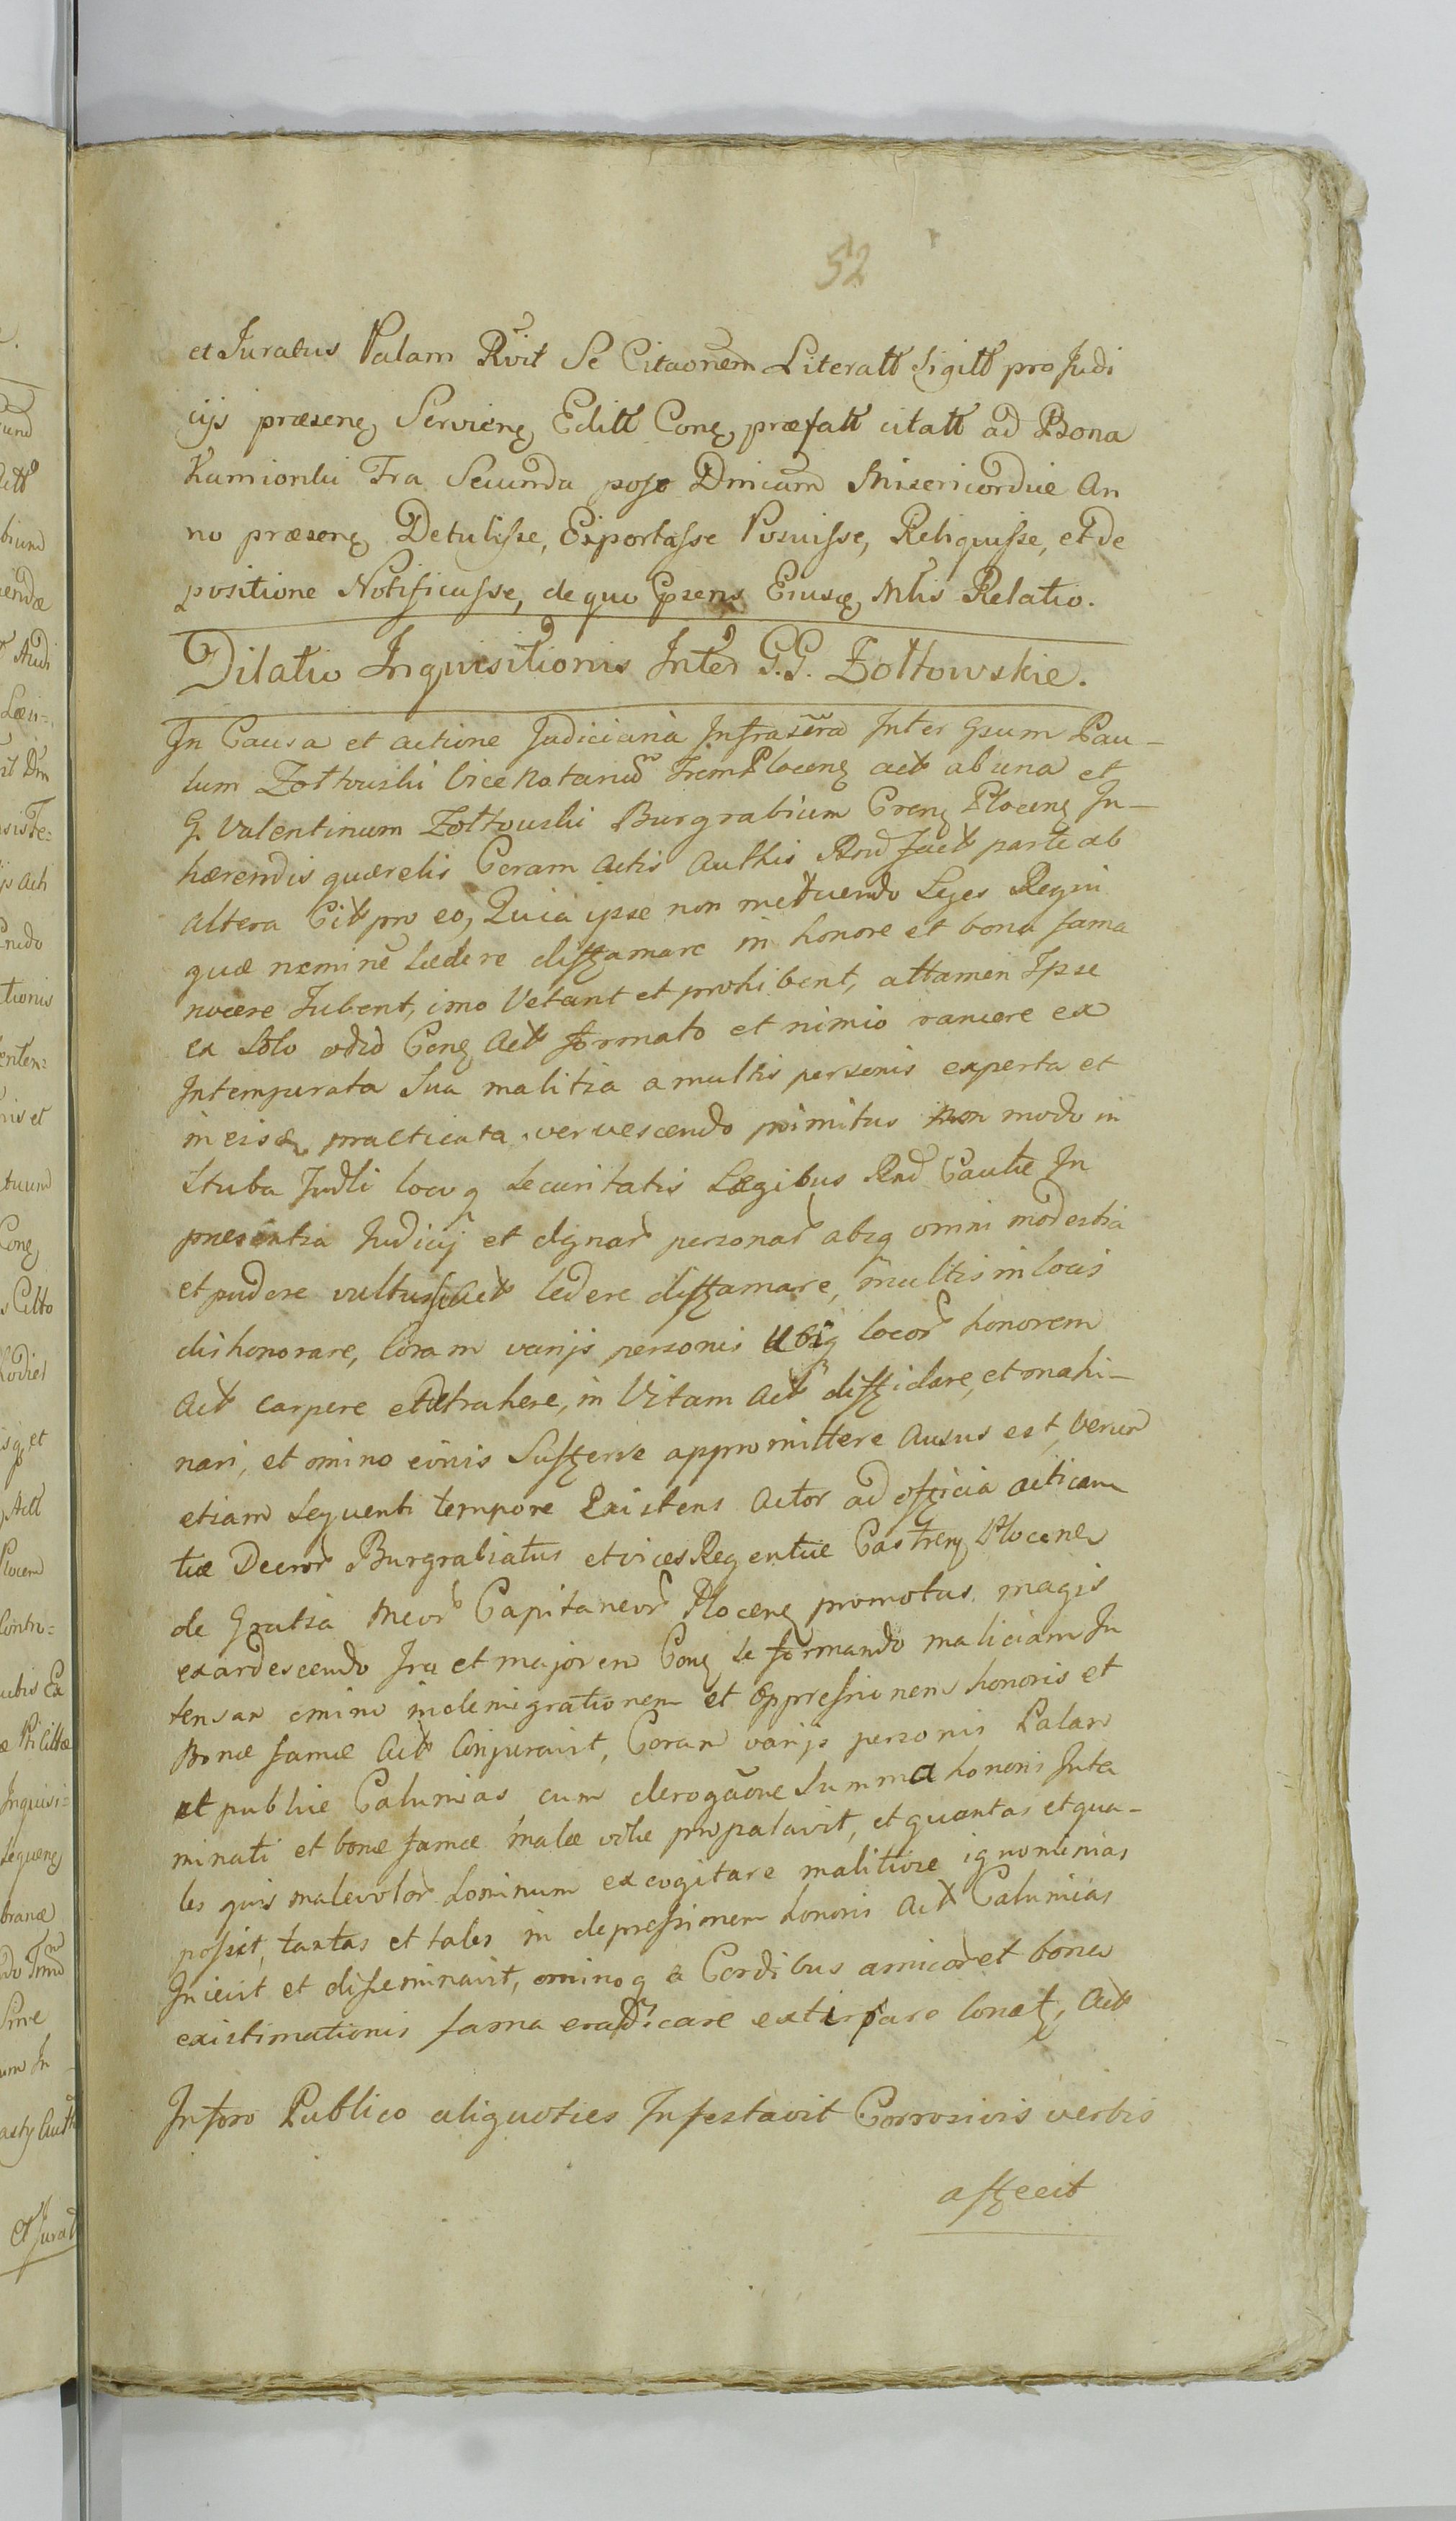 52
et Juratus Palam Rvit Se Citaonem Literatt Sigitt pro Judi
cijs præsenę Servienę Editt Conę præfatt citatt ad Bona
Kamionki Fra Secunda post Dnicam Misericordiæ An
no præsenę Detulisse, Exportasse Posuisse, Reliquisse, et de
positione Notificasse, de quo Præsens Eiusdę Mlis Relatio.
Dilatio Inquisitionis Inter G.G. Zołtowskie.
In Causa et actione Judiciaria Infrascra Inter Gsum Pau-
lum Zołtowski Vice Notariu Trem Plocenę act ab una et
G. Valentinum Zołtowski Burgrabium Crenę Plocenę In-
hærendis quærelis Coram Actis Authis Rnd fact parte ab
altera Cit pro eo, Quia ipse non metuendo Leges Regni
quæ neminē Lædere diffamare in honore et bona fama
nocere Jubent, imo Vetant et prohibent, attamen Ipse
ex Solo odio Conę Act formato et nimio rancore ex
Intemperata Sua malitia a multis personis experta et
in eisdę practicata, vervescendo primitus non modo in
Stuba Judli locoq Securitatis Lægibus Rnd Cautæ In
presentia Judicij et dignar personar absq omni modestia
et pudore vultus Act ledere diffamare, multis in locis
dishonorare, Coram varijs personis ubiq locor honorem
Act carpere et detrahere, in Vitam Act diffidare, et mahi-
nari, et omino eivis Sufferre appromittere Ausus est, verum
etiam Sequenti tempore Existens Actor ad officia acticam
tiæ Decror Burgrabiatus et vices Regentiæ Castrenę Plocenę
de Gratia Meor Capitaneor Plocenę promotus magis
exardescendo Ira et majorem Conę Se formando maliciam In
tensam omino in denigrationem et Oppressionem honoris et
Bonæ famæ Act Conjuravit, Coram varijs personis Palam
et publice Calumias cum derogaone Summa honoris Inta
minati et bonæ famæ malæ vitæ propalavit, et quantas et qua-
les quis malevolor hominum excogitare malitiose ignominias
possit, tantas et tales in depressionem honoris Act Calumias
Iniecit et disseminavit, ominoq a Cordibus amicor et bona
existimationis fama eradicare extirpare Conat, Act
In foro Publico aliquoties Infestavit Corrosivis verbis
affecit